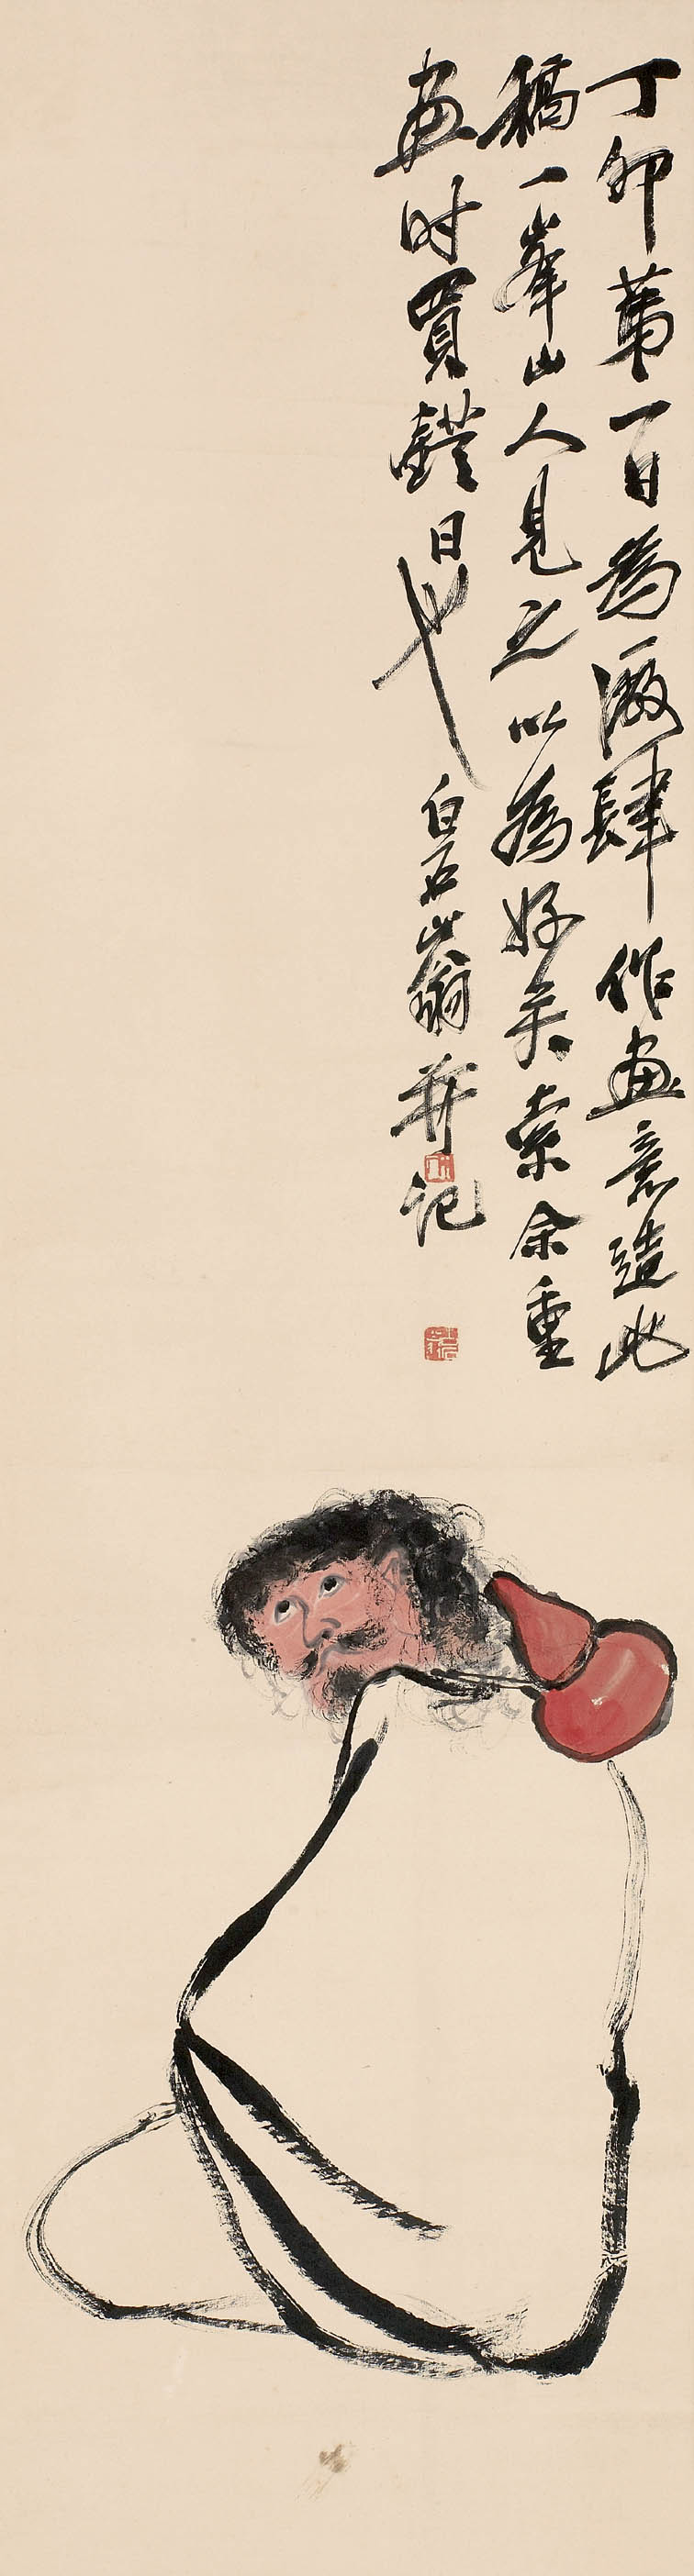 丁卯第一日為厰肆作画意造此
稿一峯山人見之以為好矣索余重
画时買鐙日也 白石山翁并记